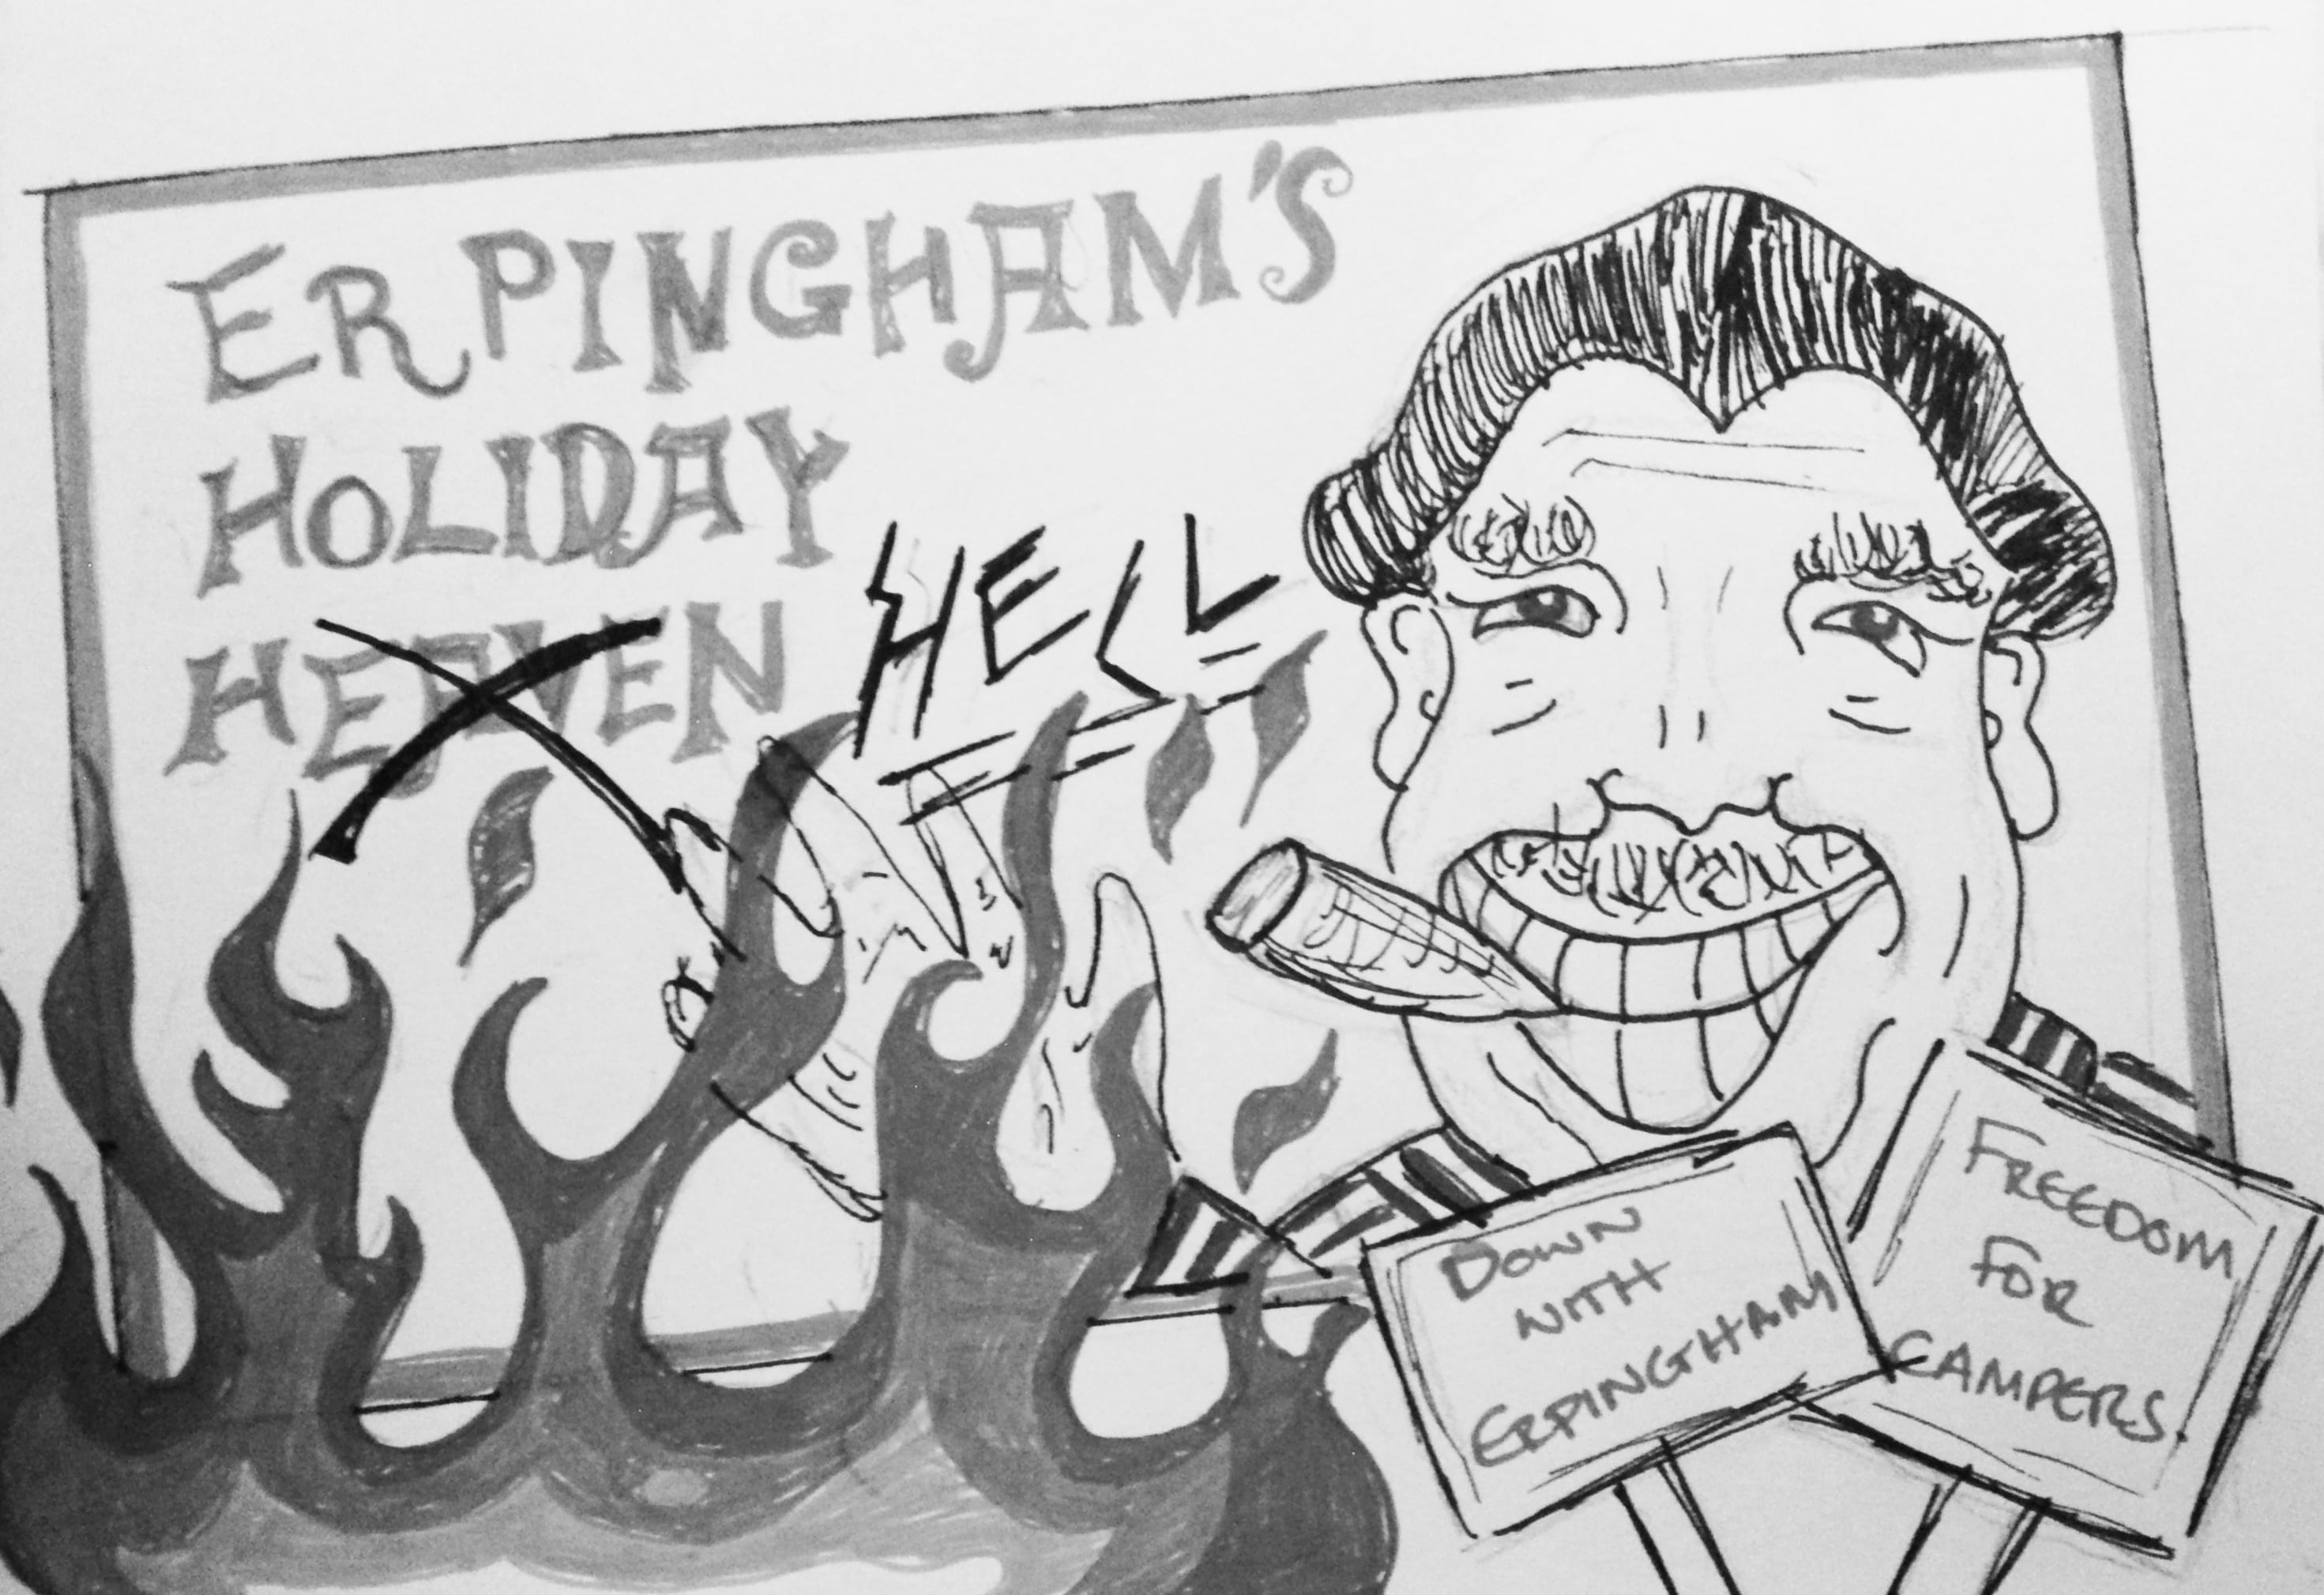 ERPINGHAM'S
HOLIDAY
HEAVEN
HELL
DOWN
WITH
ERPINGHAM
FREEDOM
FOR
CAMPERS.